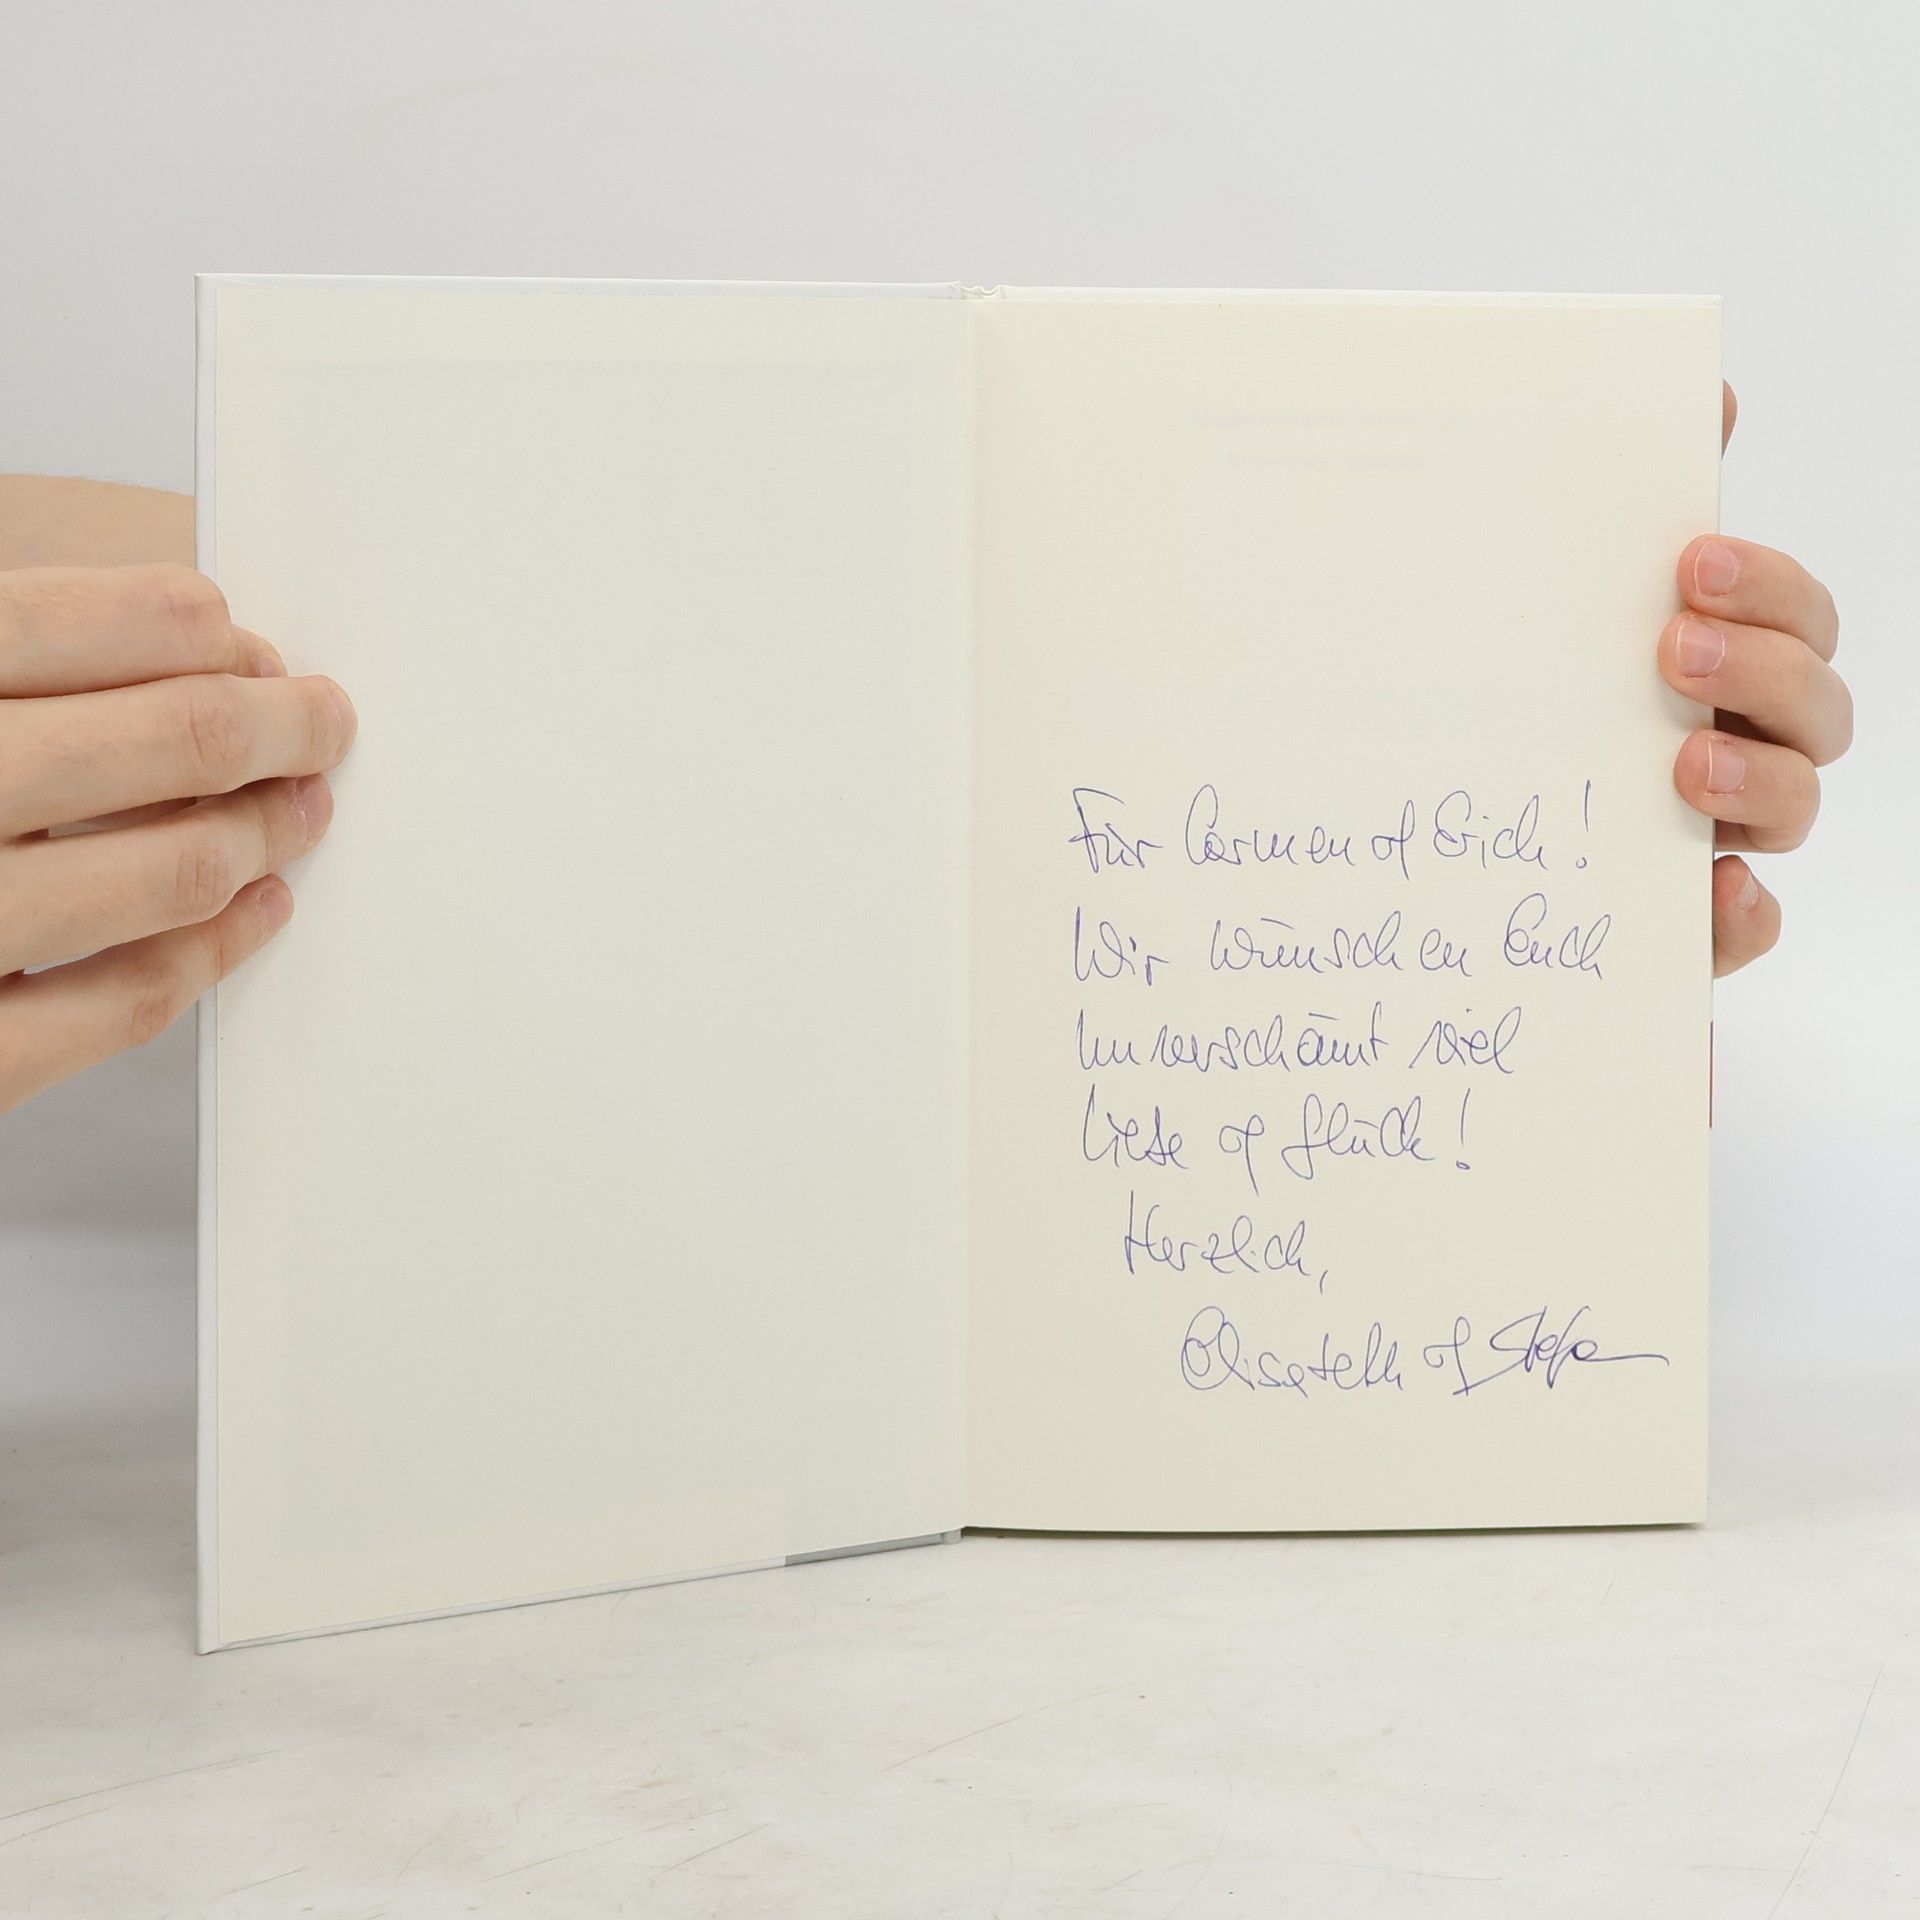 Für Carmen & Erich!
Wir wünschen Euch
unverschämt viel
Liebe & Glück!
Herzlich,
Elisabeth & Stefan